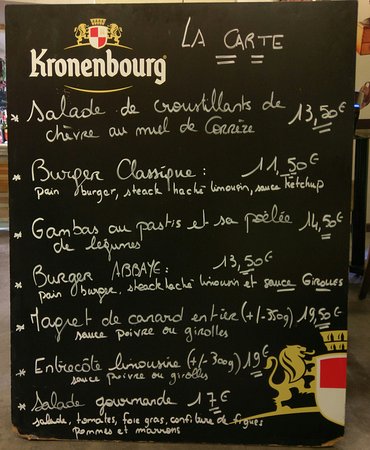 Kronenbourg
LA CARTE
* Salade de croustillants de 13,50€
chèvre au miel de Corrèze
* Burger Classique : 11,50€
pain burger, steack haché limousin, sauce Ketchup
* Gambas au pastis et sa poêlée 14,50€
de légumes
* Burger ABBAYE : 13,50€
pain burger, steack haché limousin et sauce Girolles
* Magret de canard entier (+/- 350g) 19,50€
sauce poivre ou girolles
* Entrecôte limousine (+/- 300g) 19€
sauce poivre ou girolles
* Salade gourmande 17€
salade, tomates, foie gras, confiture de figues
pommes et marrons